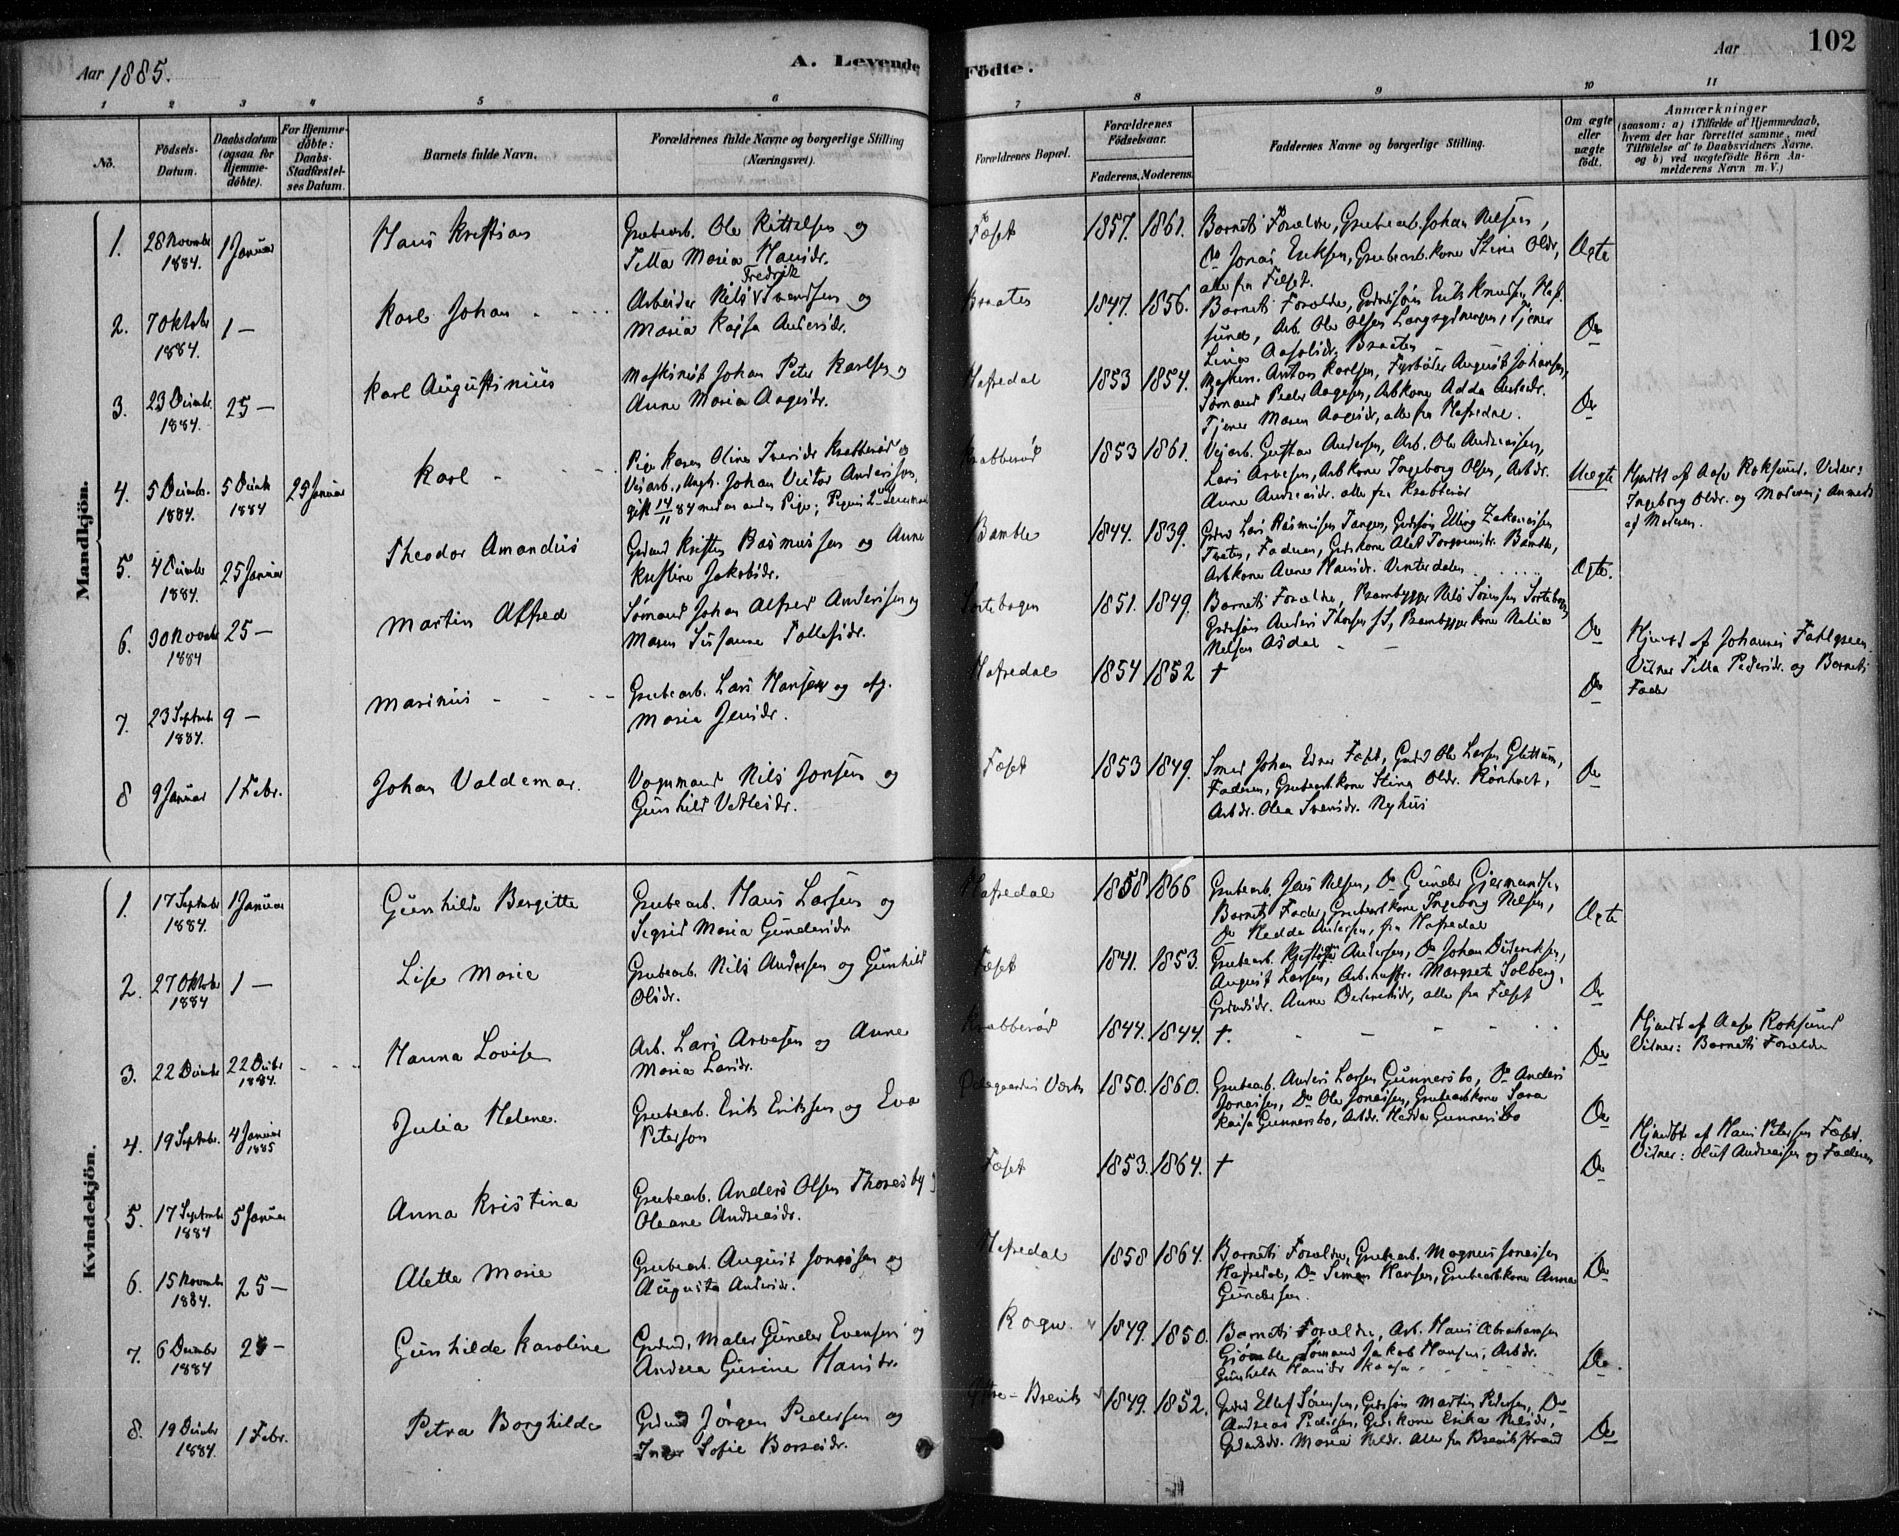 Aar 1885.
A. Levende Födte.
Aar
102
1 2 3 4 5 6 7 8 9 10 11
No.
Födsels-
Datum.
Daabsdatum
(ogsaa for
Hjemme-
döbte).
For Hjemme-
döbte:
Daabs-
Stadfæstel-
ses Datum.
Barnets fulde Navn.
Forældrenes fulde Navne og borgerlige Stilling
(Næringsvei).
Forældrenes Bopæl.
Forældrenes
Födselsaar.
Faderens. Moderens.
Faddernes Navne og borgerlige Stilling.
Om ægte
eller
uægte
født.
Anmærkninger
(saasom: a) i Tilfælde af Hjemmedaab,
hvem der har forrettet samme, med
Tilföielse af to Daabsvidners Navne.
og b) ved uægtefödte Börn An-
melderens Navn m. V.)
Mandkjön.
1. 28 Novembr 1884. 1 Januar
Hans Kristian
Grubearb. Ole Kittelsen og
Tilla Maria Hansdr.
Fæset 1857. 1861.
Barnets Forældre, Grubearb. Johan Nilsen,
Do Jonas Eriksen, Grubearb.kone Stine Olsdr,
alle fra Fæset.
Ægte
2. 7 Oktobr 1884. 1 —
Karl Johan
Arbeider Nils Fredrik Svendsen og
Maria Kajsa Andersdr.
Braaten 1847. 1856.
Barnets Forældre, Erik Knudsen
Arb. Ole Olsen Tjener
Braaten
Do
3. 23 Decembr. 1884. 25 —
Karl Augustinius
Maskinist Johan Peter Karlsen og
Anne Maria Aagesdr.
Hafredal 1853 1854.
Maskin. Anton Karlsen, Fyrbøder August Johansen,
Sømand Peder Aagesen, Arbkone Adda
Tjener Maren Aagesdr, alle fra Hafredal.
Do
4. 5 Decembr. 1884. 5 Decbr 1884 25 Januar
Karl
Pige Karen Oline Iversdr Krabberød og
Veiarb., Ungk. Johan Victor Andersson,
gift 14/11 84 med en anden Pige; Pigens 2det Leiermaal
Krabberød 1853 1861.
Veiarb. Gustav Andersen, Arb. Ole Andreassen,
Lars Arvesen, Arbkone Ingeborg Olsen, Arbdr.
Anne Andreasdr. alle fra Krabberød
Uægte
Hjmdt af Aase Roksund. Vidner:
Ingeborg Olsdr. og Moderen; Anmeldt
af Moderen.
5. 4 Decembr 1884. 25 Januar
Theodor Amandus
Gdmd Kristen Rasmussen og Anne
Kristine Jakobsdr.
Bamble 1844. 1839.
Gdmd Lars Rasmussen Tangen, Gdssøn Elling Zakariassen
Traaten, Faderen, Gdskone Alet Torgrimsdr. Bamble,
Arbkone Anne Hansdr. Vinterdalen
Ægte.
6. 30 Novembr 1884 25 —
Martin Alfred
Sømand Johan Alfred Andersen og
Maren Susanne Tollefsdr.
Sortebogen 1851. 1849.
Barnets Forældre, Brambygger Nils Sørensen Sortebogen
Gdssøn Anders Thorsen SS, Brambyggerkone
Nilsen Asdal
Do
7. 23 Septembr 1884. 9 —
Marinius
Grubearb. Lars Hansen og
Maria Jensdr.
Hafredal 1854 1852 †
Do
Hjmdt af Johannes Fahlgreen
Vidner Tilla Pedersdr. og Barnets
Fader
8 9 Januar 1 Febr.
Johan Valdemar.
Vognmand Nils Jonsen og
Gunhild Vetlesdr.
Fæset 1853 1849.
Smed Johan Fæset, Gdmd Ole Larsen
Faderen, Grubearb.kone Stine Olsdr. Rønholt,
Arbdr. Olea Svensdr. Nyhus
Do
Kvindekjön.
1. 17 Septembr 1884. 1 Januar
Gunhilde Bergitte
Grubearb. Hans Larsen og
Sigrid Maria Gundersdr.
Hafredal 1858 1866
Grubearb. Jens Nilsen, Do Gunder Gjermundsen
Barnets Fader, Grubearbkone Ingeborg Nilsen,
Do Hedda Andersen, fra Hafredal
Ægte
2. 27 Oktobr 1884 1 —
Lise Marie
Grubearb. Nils Andersen og Gunhild
Olsdr.
Fæset 1841. 1853.
Grubearb. Andersen, Do Johan Dideriksen,
August Larsen, Arb.hustr. Margrete Solberg,
Anne alle fra Fæset
Do
3. 22 Decembr 22 Decbr 1884.
Hanna Lovise
Arb. Lars Arvesen og Anne
Maria Larsdr.
Krabberød 1844. 1844. †.
Do
Hjmdt af Aase Roksund
Vidner: Barnets Forældre
4. 19 Septembr. 4 Januar 1885
Julia Helene.
Grubearb. Erik Eriksen og Eva
Peterson
Ødegaardens Værk 1850. 1860.
Grubearb. Anders Larsen Gunnersbo, Do Anders
Jonassen, Do Ole Jonassen, Grubearbkone Sara
Kaisa Gunnersbo, Arbdr. Hedda Gunnersbo
Do
5. 17 Septembr 1884 5 Januar
Anna Kristina
Grubearb. Anders Olsen Thoresby og
Oleane Andreasdr.
Fæset 1853. 1864. †
Do
Hjmdbt af Hans Petersen Fæset.
Vidner: Oluf Andreassen og Faderen
6. 15 Novembr 1884. 25 —
Alette Marie
Grubearb. August Jonassen og
Augusta Andersdr.
Hafredal 1858 1864.
Barnets Forældre, Grubearb. Magnus Jonassen
Hafredal, Do Simen Hansen, Grubearbkone Anna
Gundersen.
Do
7. 6 Decembr 1884 25 —
Gunhilde Karoline
Gdmd, Maler Gunder Evensen og
Andrea Gurine Hansdr.
Rogn. 1849. 1850.
Barnets Forældre, Arb. Hans Abrahamsen
Gjømle, Sømand Jakob Hansen, Arbdr.
Gunhild Hansdr
Do.
8. 19 Decbr 1884. 1 Febr.
Petra Borghilde
Gdmd Jørgen Pedersen og
Inger Sofie Børsesdr.
Ytre-Brevik 1849. 1852.
Gdmd Ellef Sørensen, Gdssøn Martin Pedersen, Do
Andreas Pedersen, Gdskone Erika Nilsdr,
Gdmdsdr. Maria Nilsdr. Alle fra Brevikstrand
Do